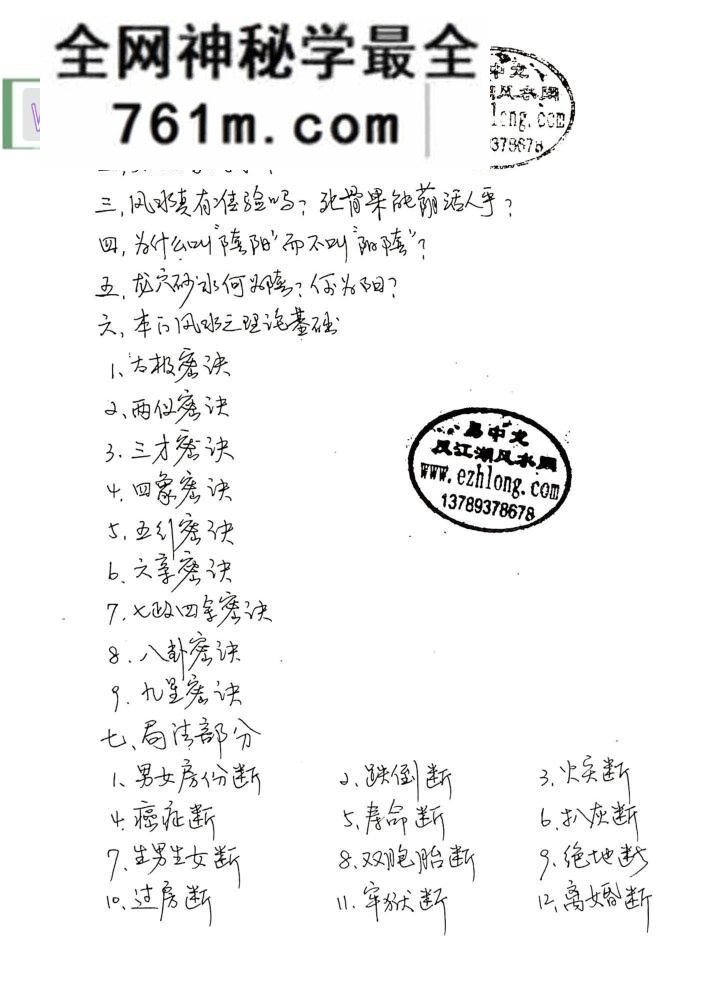 全网神秘学最全
761m.com
三,风水真有佳验吗?死骨果能荫活人乎?
四,为什么叫"陰阳"而不叫"阳陰"?
五,龙穴砂水何为陰?何为阳?
六,本门风水之理论基础
1、太极密诀
2、两仪密诀
3.三才密诀
4.四象密诀
5.五行密诀
6.六事密诀
7.七政四余密诀
8.八卦密诀
9.九星密诀
七、局法部分
1、男女房份断 2、跌倒断 3、火灾断
4.癌症断 5、寿命断 6、扒灰断
7、生男生女断 8、双胞胎断 9、绝地断
10、过房断 11.牢狱断 12、离婚断
易中龙
风江湖风水网
www.ezhlong.com
13789378678